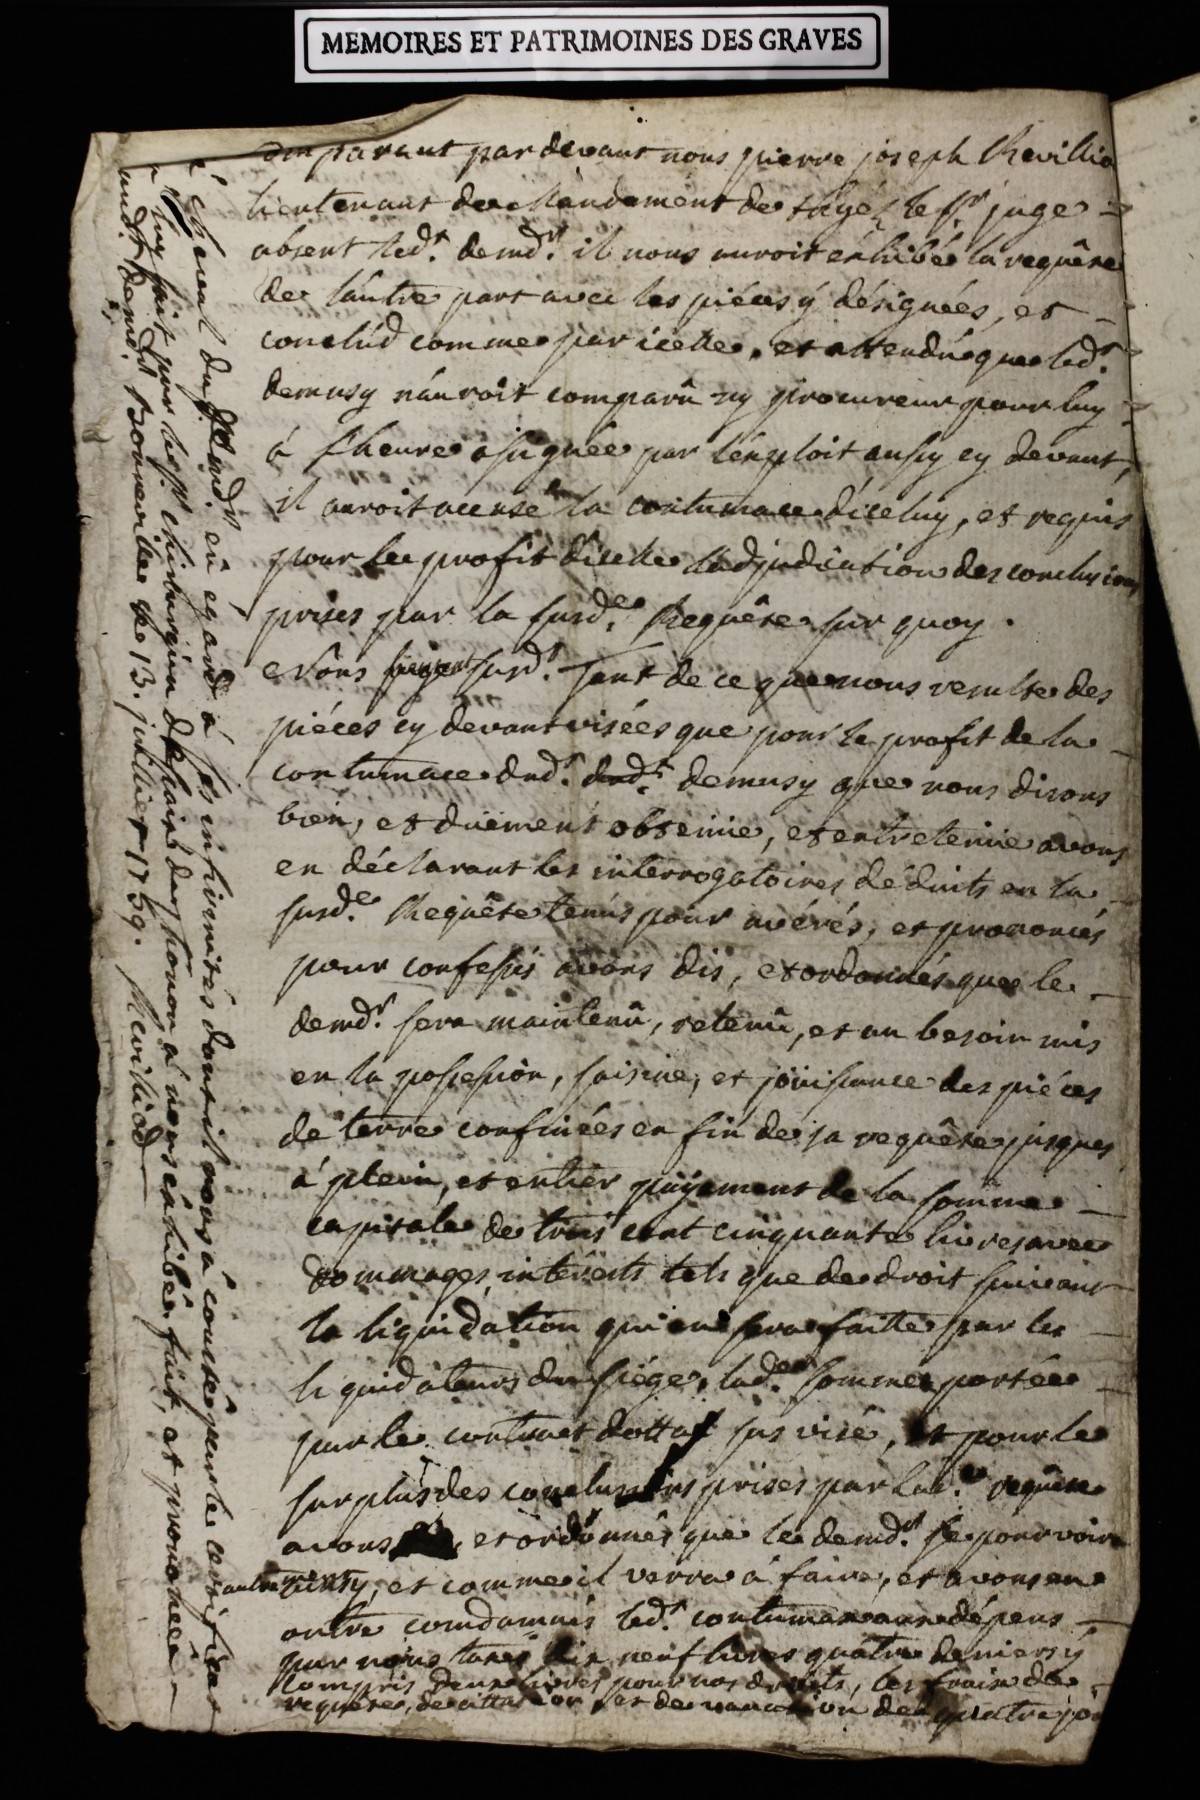 MEMOIRES ET PATRIMOINES DES GRAVES
Comparant par devant nous pierre joseph Revillio
lieutenant du Mandement de le Sr. juge
absent led.t demd.r il nous auroit exhibée la requête
de l'autre part avec les piéces ÿ désignées, et
conclud comme par icelle, et attendu que led.t
demusy n'auroit comparû ny procureur pour luy
à l'heure assignée par l'exploit aussy cy devant,
il auroit accusé la contumace d'iceluy, et requis
pour le profit d'icelle l'adjudication des conclusions
prises par la susd.e Requête sur quoy.
Nous susd.t Tant de ce que nous resulte des
piéces cy devant visées que pour le profit de la
contumace dud.t dud.t demusy que nous disons
bien, et duëment obtenüe, et entretenüe avons
en déclarant les interrogatoires déduits en la
susd.e Requête tenus pour avérés, et prononcés
pour confessés avons dis, et ordonnés que le
demd.r sera maintenû, retenû, et au besoin mis
en la possession, saisine, et joüissance des piéces
de terre confinées en fin de sa requête jusques
à plein, et entier payement de la somme
capitale de trois cent cinquante livres avec
dommages, interêts tels que de droit suivant
la liquidation qui en sera faitte par les
liquidateurs du siége, lad.e somme portée
par le contract dottal sus visé, et pour le
surplus des conclusions prises par lad.e requête
avons et ordonnés que le demd.r se pourvoira
autrement, et comme il verra à faire, et avons en
outre condamnés led.t contumax aux dépens
par nous taxés dix neuf livres quatre deniers ÿ
compris deux livres pour nos droits, les frais de
requête, de cittation et de vaccation de quatre jo
é chéant du demd.r eû egard à ses infirmités dont il nous à consté par le certificat
luy fait par le sr. chirurgien à nous exhibé, fait, et prononcé
aud.t demd.r Bonneville ce 13. juillet 1759. Revilliod